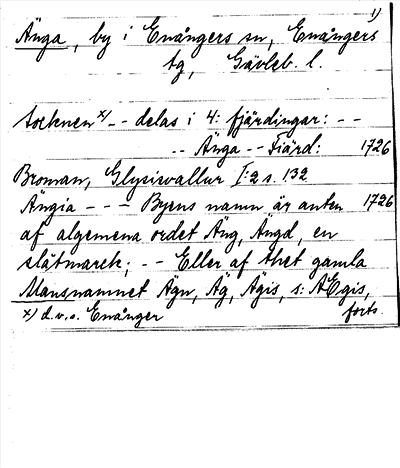 1)
Änga, by i Enångers sn, Enångers
tg, Gävleb. l.
tocknen x) -- delas i 4: fjärdingar: --
-- Änga -- Fiärd: 1726
Broman, Glysisvallur I:2 s. 132
Ängia --- Byens namn är anten 1726
af algemena ordet Äng, Ängd, en
slåtmarck; -- Eller af thet gamla
Mansnamnet Ägn, Äg, Ägis, s: AEgis,
x) d.v.s. Enånger forts.